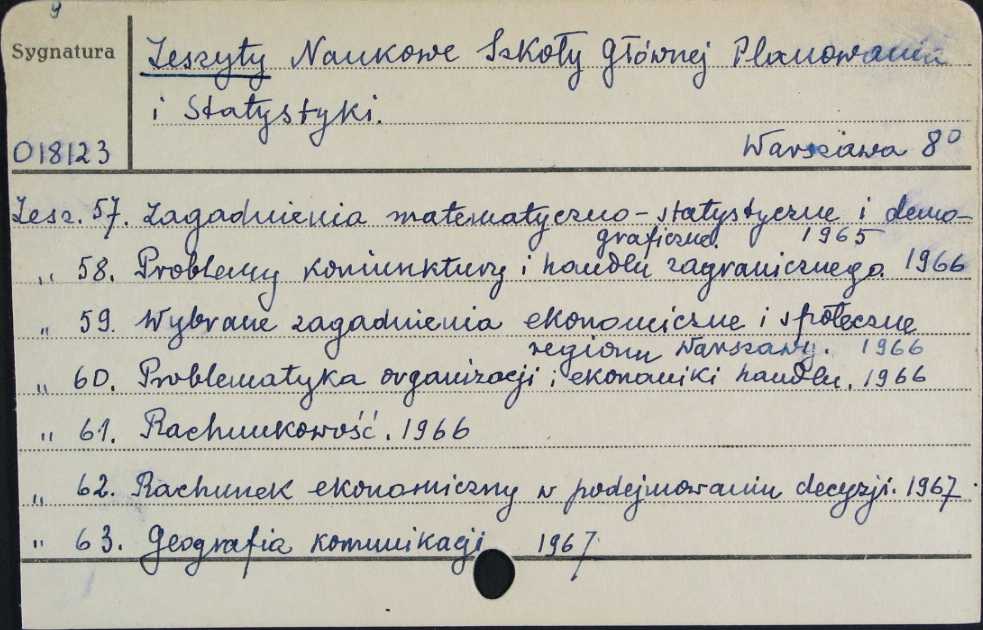 9
Sygnatura
Zeszyty Naukowe Szkoły Głównej Planowania
i Statystyki.
018123
Warszawa 8°
Zesz. 57. Zagadnienia matematyczno-statystyczne i demo-
graficzne. 1965
„ 58. Problemy koniunktury i handlu zagranicznego 1966
„ 59. Wybrane zagadnienia ekonomiczne i społeczne
regionu Warszawy. 1966
„ 60. Problematyka organizacji i ekonomiki handlu. 1966
„ 61. Rachunkowość. 1966
„ 62. Rachunek ekonomiczny w podejmowaniu decyzji. 1967.
„ 63. Geografia komunikacji 1967.